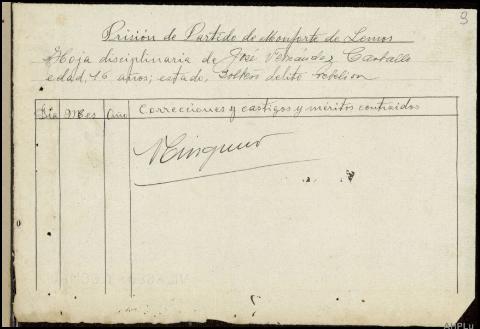 9
Prisión de Partido de Monforte de Lemos
Hoja disciplinaria de José Carballo
edad, 16 años; estado, Soltero delito rebelion
Dia Mes Año Correcciones y castigos y meritos contraidos
Ninguno
AHPLu